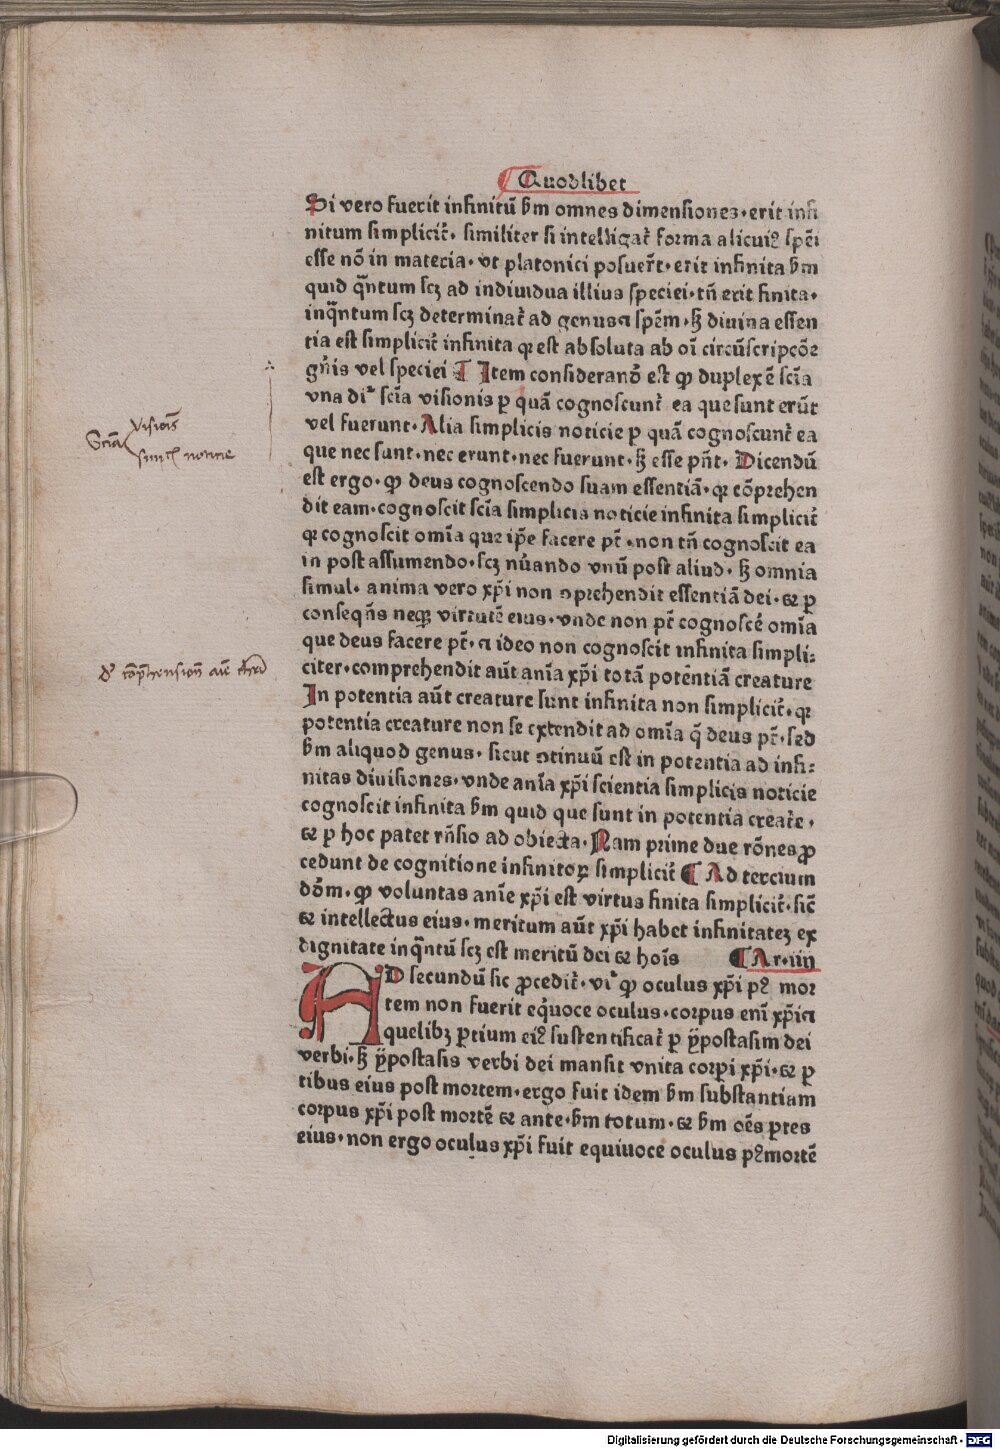 Quodlibet
Si vero fuerit infinitū ẜm omnes dimensiones. erit infi
nitum simplicit̃. similiter si intelligat̃ forma alicui9 spẽi
esse nõ in materia. vt platonici posuer̃t. erit infinita ẜm
quid q̃ntum scz ad indiuidua illius speciei. tñ erit finita.
inq̃ntum scz determinat̃ ad genus ⁊ spẽm. sꝫ diuina essen
tia est simplicit̃ infinita qꝛ est absoluta ab oĩ circũscripcõe
gñis vel speciei ¶ Item considerand̃ est ꝙ duplex ẽ scĩa
vna dr̃ scĩa visionis ꝑ quã cognoscunt̃ ea que sunt erũt
vel fuerunt. Alia simplicis noticie ꝑ quã cognoscunt̃ ea
que nec sunt. nec erunt. nec fuerunt. sꝫ esse pñt. Dicendũ
est ergo. ꝙ deus cognoscendo suam essentiã. qꝛ cõprehen
dit eam. cognoscit scĩa simplicis noticie infinita simplicit̃
qꝛ cognoscit omĩa que ip̃e facere pt̃. non tñ cognoscit ea
in post assumendo. scz nũando vnũ post aliud. sꝫ omnia
simul. anima vero xp̃i non ꝯprehendit essentiã dei. ⁊ ꝑ
conseqñs neqꝫ virtutẽ eius. vnde non pt̃ cognoscẽ omĩa
que deus facere pt̃. ⁊ ideo non cognoscit infinita simpli-
citer. comprehendit aũt anĩa xp̃i totã potẽtiã creature
In potentia aũt creature sunt infinita non simplicit̃. qꝛ
potentia creature non se extendit ad omĩa q̃ deus pt̃. sed
ẜm aliquod genus. sicut ꝯtinuũ est in potentia ad infi-
nitas diuisiones. vnde anĩa xp̃i scientia simplicis noticie
cognoscit infinita ẜm quid que sunt in potentia creat̃e.
⁊ ꝑ hoc patet rñsio ad obiecta. Nam prime due rõnes ꝓ
cedunt de cognitione infinitoꝝ simplicit̃ ¶ Ad tercium
dõm. ꝙ voluntas anĩe xp̃i est virtus finita simplicit̃. sic̃
⁊ intellectus eius. meritum aũt xp̃i habet infinitatez ex
dignitate inq̃ntũ scz est meritũ dei ⁊ hoĩs ¶ Ar. iiij
AD secundũ sic ꝓcedit̃. vr̃ ꝙ oculus xp̃i p9 mor
tem non fuerit eq̃uoce oculus. corpus enĩ xp̃i ⁊
quelibꝫ ꝑtium ei9 sustentificat̃ ꝑ ẏpostasim dei
verbi. sꝫ ẏpostasis verbi dei mansit vnita corpi xp̃i. ⁊ ꝑ
tibus eius post mortem. ergo fuit idem ẜm substantiam
corpus xp̃i post mortẽ ⁊ ante. ẜm totum. ⁊ ẜm oẽs ꝑtes
eius. non ergo oculus xp̃i fuit equiuoce oculus p9 mortẽ
Scĩa
visionis
simpl̃ noticie
Digitalisierung gefördert durch die Deutsche Forschungsgemeinschaft - DFG